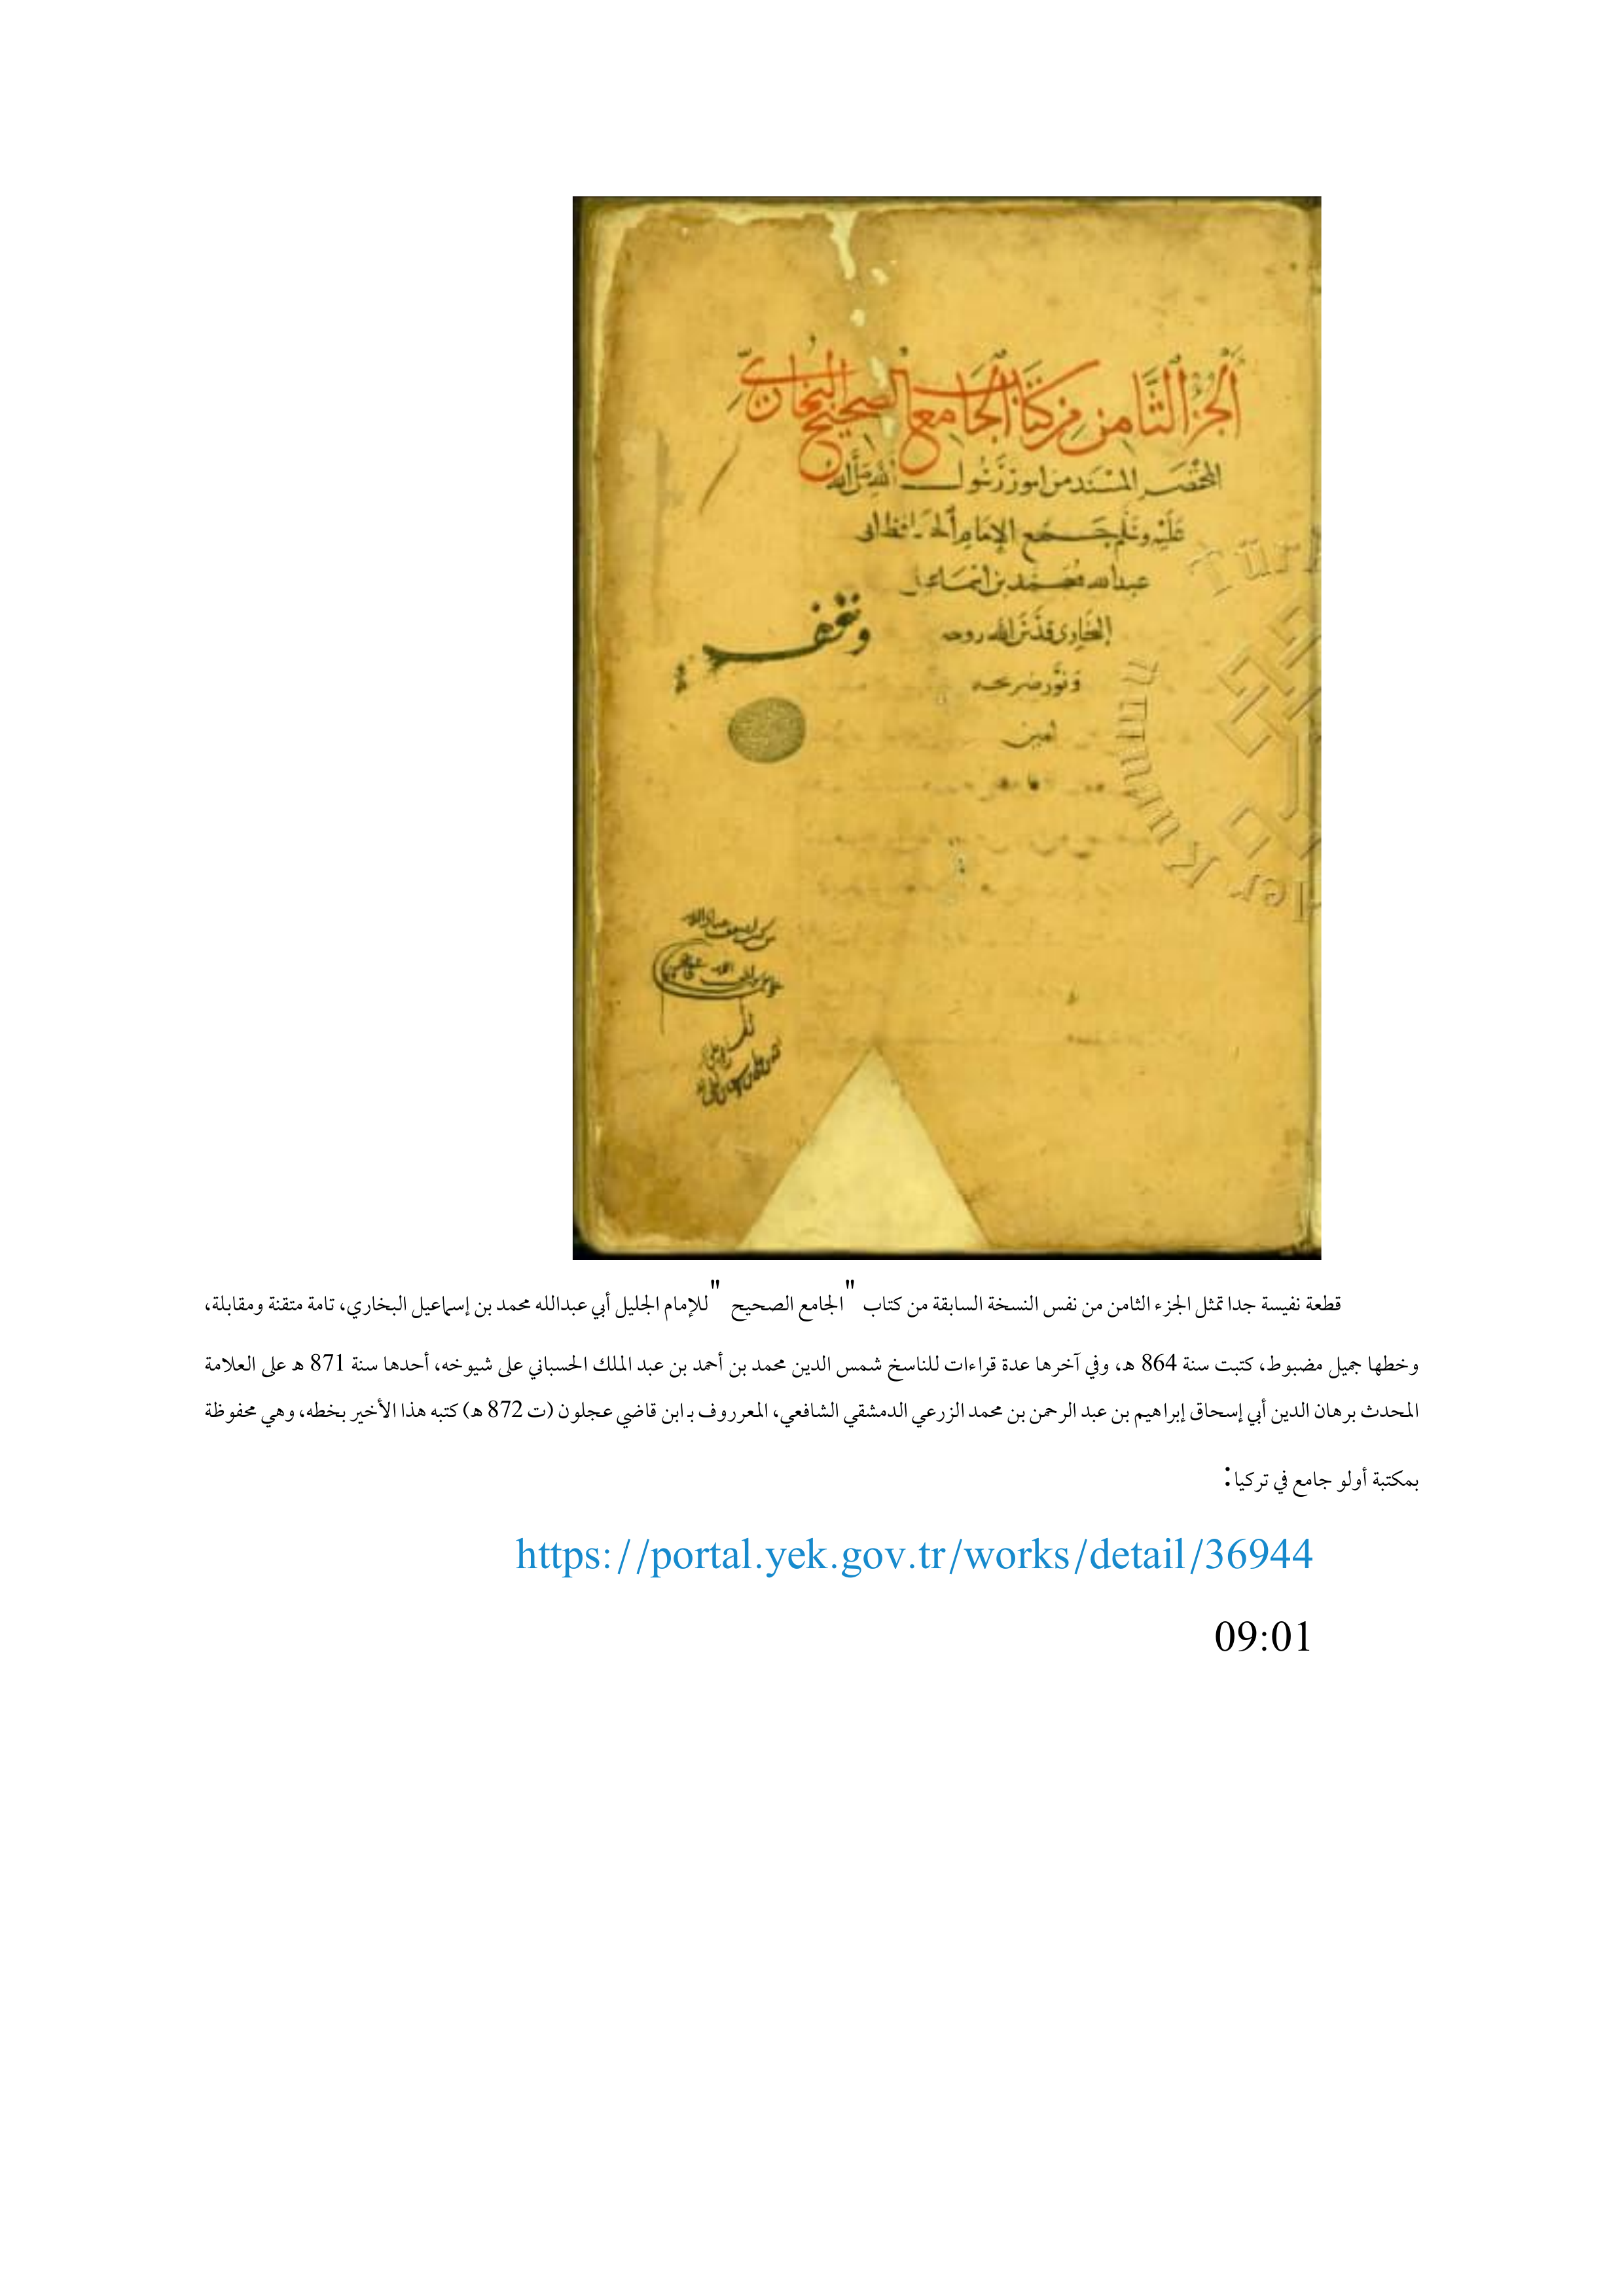 الجزء الثامن من كتاب الجامع الصحيح البخاري
المختصر المسند من امور رسول الله صلى الله
عليه وسلم جمع الإمام الحافظ ابي
عبد الله محمد بن اسماعيل
البخاري قدس الله روحه
ونور ضريحه
امين
وقف
Tür
قطعة نفيسة جدا تمثل الجزء الثامن من نفس النسخة السابقة من كتاب "الجامع الصحيح" للإمام الجليل أبي عبدالله محمد بن إسماعيل البخاري، تامة متقنة ومقابلة،
وخطها جميل مضبوط، كتبت سنة 864 هـ، وفي آخرها عدة قراءات للناسخ شمس الدين محمد بن أحمد بن عبد الملك الحسباني على شيوخه، أحدها سنة 871 هـ على العلامة
المحدث برهان الدين أبي إسحاق إبراهيم بن عبد الرحمن بن محمد الزرعي الدمشقي الشافعي، المعرروف بـ ابن قاضي عجلون (ت 872 هـ) كتبه هذا الأخير بخطه، وهي محفوظة
بمكتبة أولو جامع في تركيا:
https://portal.yek.gov.tr/works/detail/36944
09:01